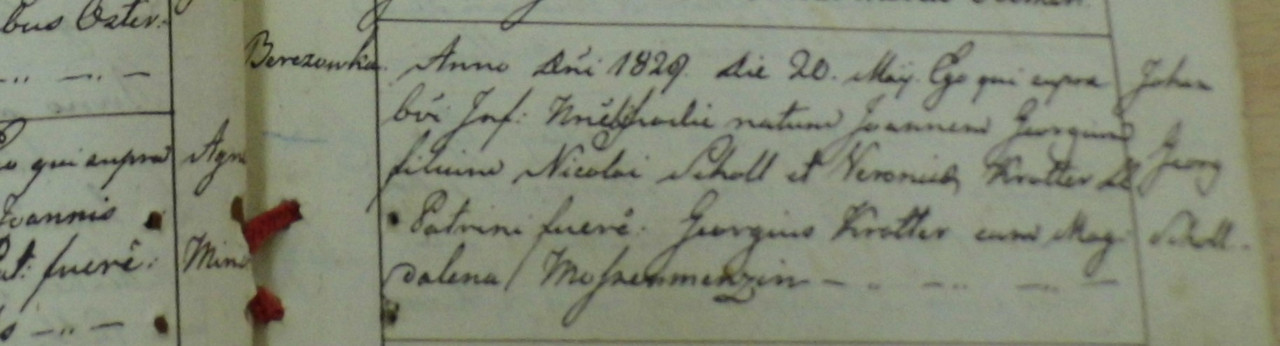 bus Oster.
qui supra Agn
Joannis
Pat: fuerê: Min
Berezowka.
Anno Dñi 1829. die 20. Maij. Ego qui supra
bvi Inf: natum Joannem Georgium
filium Nicolai Scholl et Veronica Krotter
Patrini fuerê. Georgius Krotter cum Mag
dalena
Johan
Georg
Scholl.